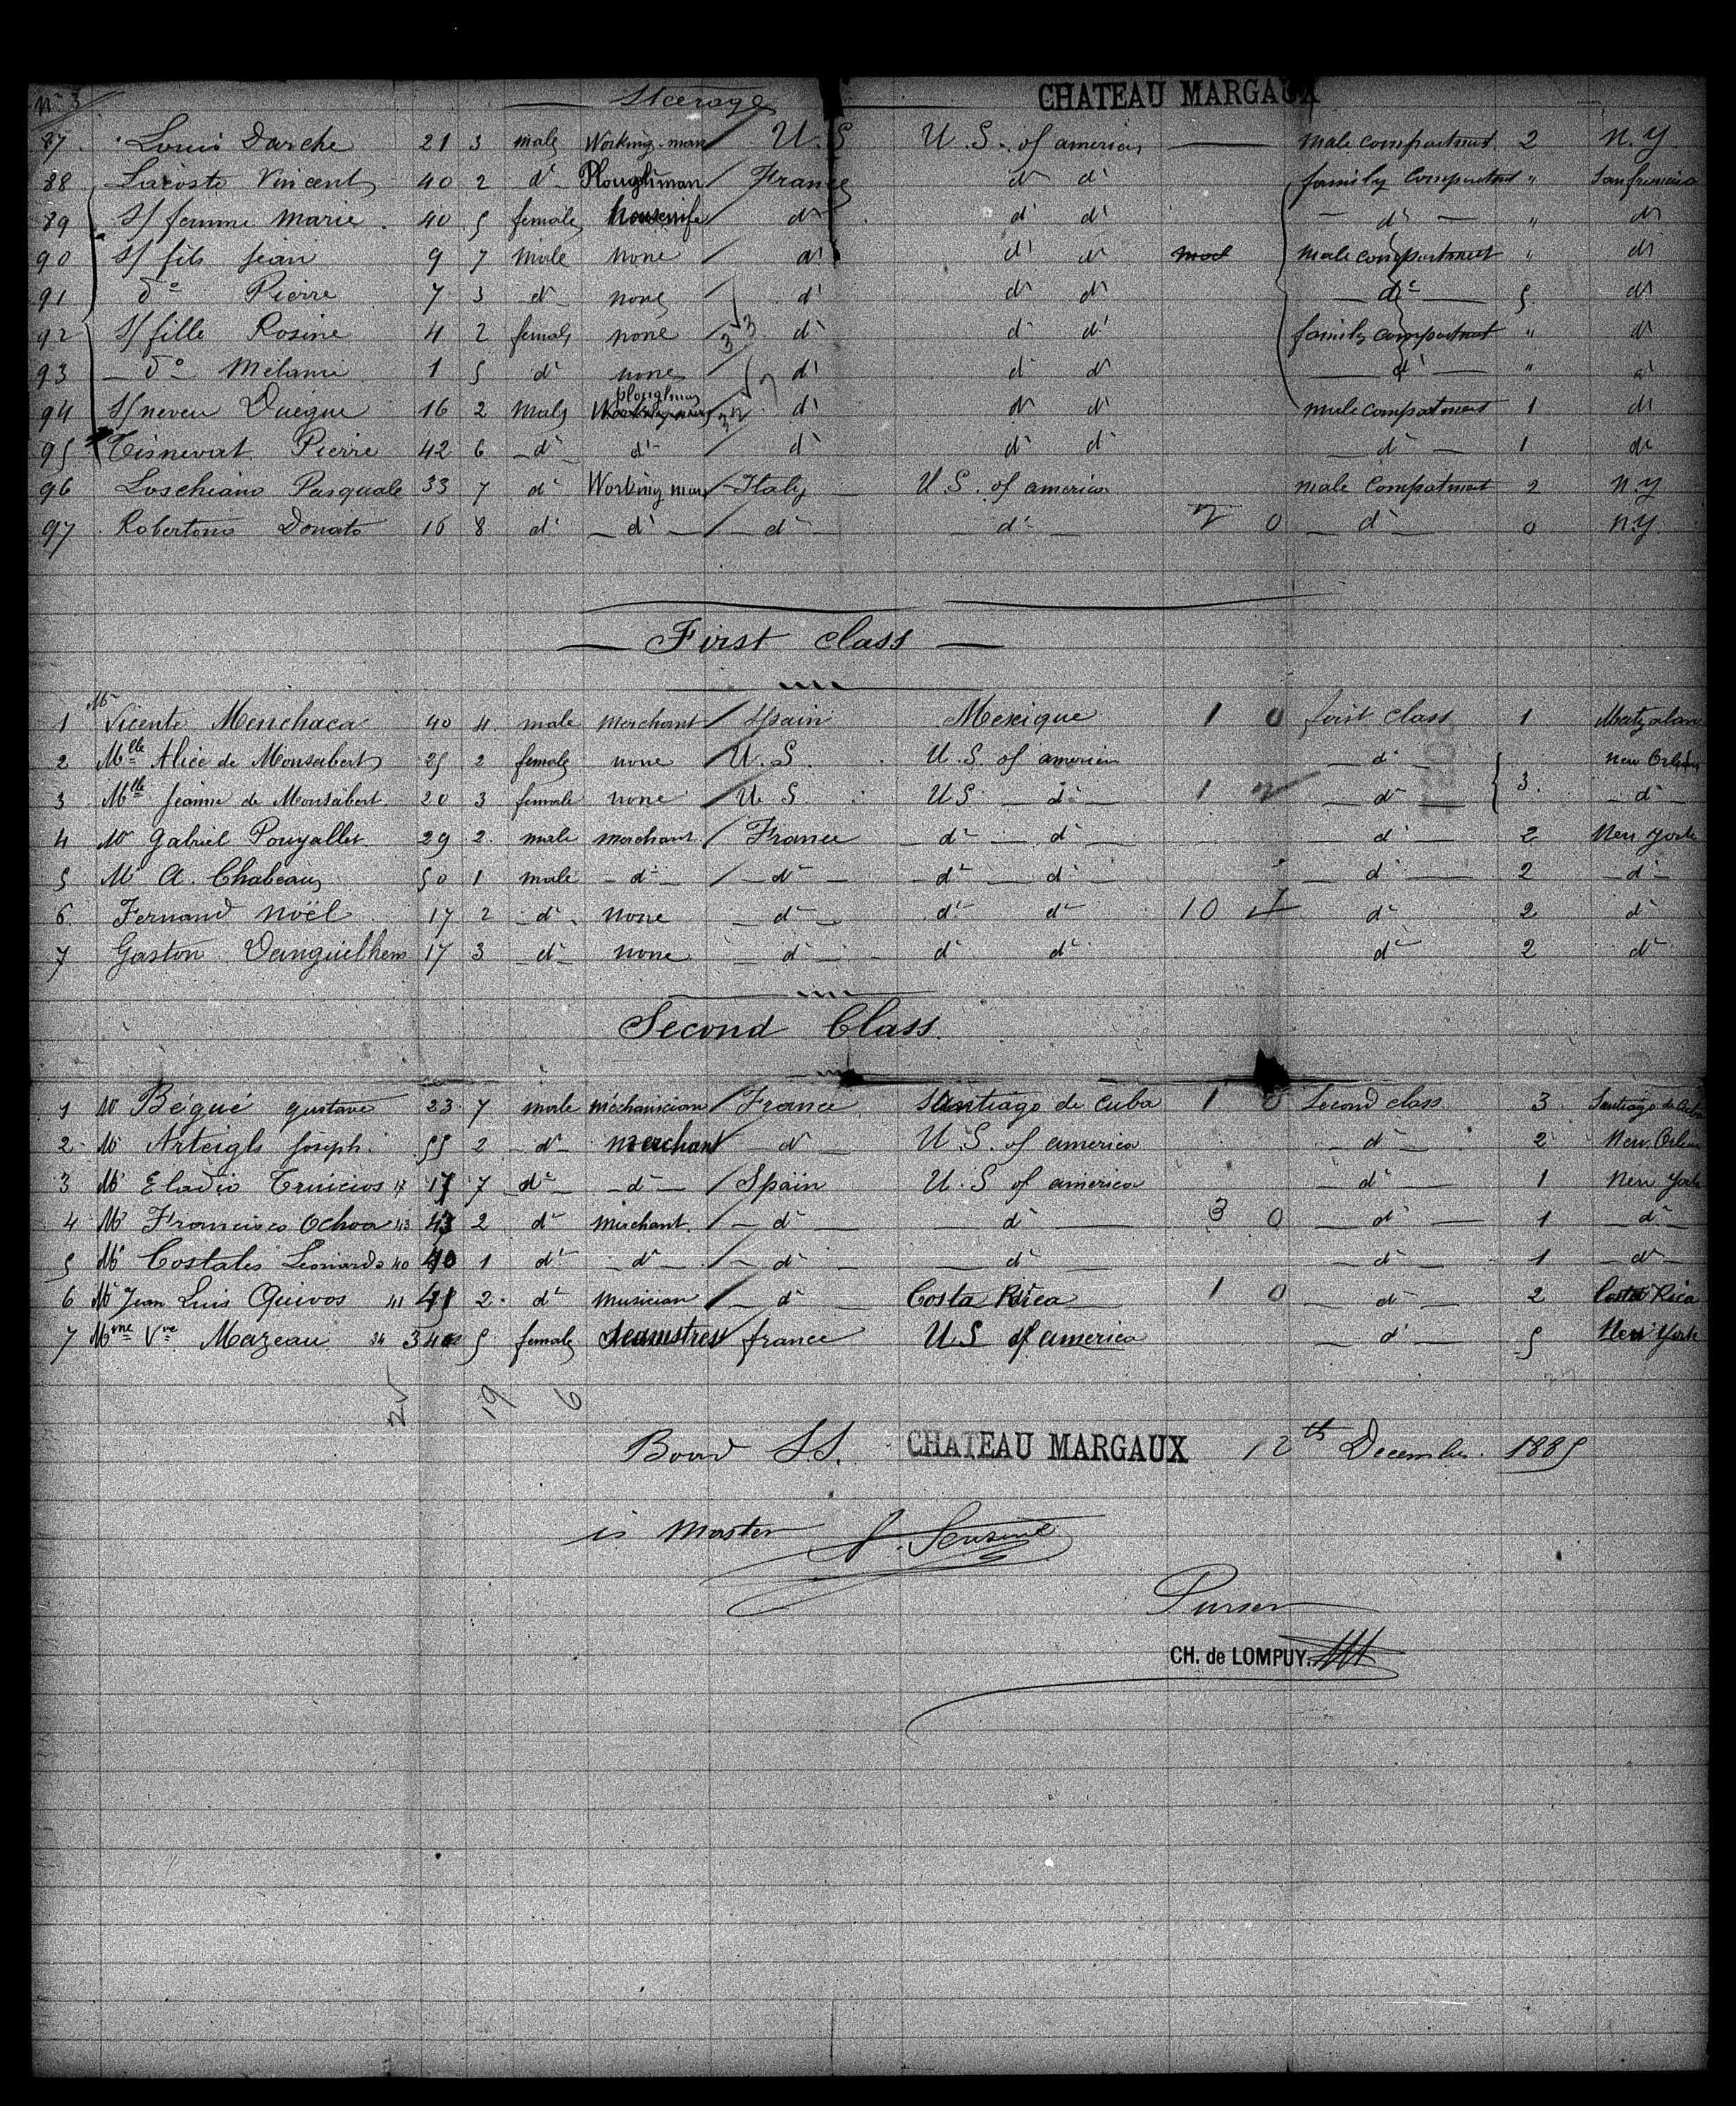 N° 3 Steerage CHATEAU MARGAUX
87 Louis Darche 21 3 male Working man U.S U.S. of america male compartment 2 N.Y
88 Lacoste Vincent 40 2 d° Ploughman France d° d° family Compartment " San francisco
89 S/ femme Marie 40 5 female housewife d° d° d° d° " d°
90 S/ fils Jean 9 7 male none d° d° d° male compartment " d°
91 d° Pierre 7 3 d° none d° d° d° d° 5 d°
92 S/ fille Rosine 4 2 female none d° d° d° family compartment " d°
93 d° Mélanie 1 5 d° none d° d° d° d° " d°
94 S/ neveu Duègue 16 2 male ploughman d° d° d° male compartment 1 d°
95 Tisnerat Pierre 42 6 d° d° d° d° d° d° 1 d°
96 Loschiano Pasquale 33 7 d° Working man Italy U.S. of america male Compatment 2 N.Y
97 Robertono Donato 16 8 d° d° d° d° 2 0 d° 0 N.Y.
First class
1 Mr Vicente Menchaca 40 4 male merchant Spain Mexique 1 0 first class 1 Matzalan
2 Mlle Alice de Monsabert 25 2 female none U.S. U.S. of america d° New Orleans
3 Mlle Jeanne de Monsabert 20 3 female none U.S. US d° 1 2 d° 3 d°
4 Mr Gabriel Pouyallet 29 2 male merchant France d° d° d° 2 New york
5 Mr A. Chabeaux 50 1 male d° d° d° d° d° 2 d°
6 Fernand Noël 17 2 d° none d° d° d° 10 d° 2 d°
7 Gaston Danguilhem 17 3 d° none d° d° d° d° 2 d°
Second Class.
1 Mr Bégué Gustave 23 7 male méchanician France Santiago de Cuba 1 0 Second class 3 Santiago de Cuba
2 Mr Arteigls Joseph 55 2 d° merchant d° U.S. of america d° 2 New Orleans
3 Mr Eladio Truicios 17 17 7 d° d° Spain U.S of america d° 1 New york
4 Mr Francisco Ochoa 43 43 2 d° merchant d° d° 3 0 d° 1 d°
5 Mr Costales Leonardo 40 40 1 d° d° d° d° d° 1 d°
6 Mr Jean Luis Quivos 41 41 2 d° musician d° Costa Rica 1 0 d° 2 Costa Rica
7 Mme Vve Mazeau 34 34 5 female seamstress france U.S of america d° 5 New York
25 19 6
Board S.S. CHATEAU MARGAUX 12th December 1885
is Master J. Sensine
Purser
CH. de LOMPUY.